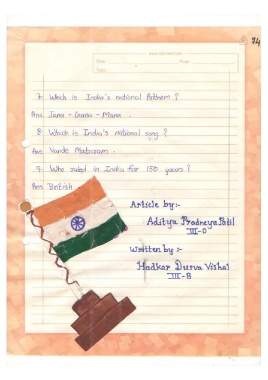 74
Date
Page
7. Which is India's national Anthem ?
Ans Jana - Gana - Mana .
8. Which is India's national song ?
Ans Vande Mataram .
9. Who ruled in India for 150 years ?
Ans British
Article by :-
Aditya Pradnya Patil
III-D
Written by :-
Hadkar Durva Vishal
III-B